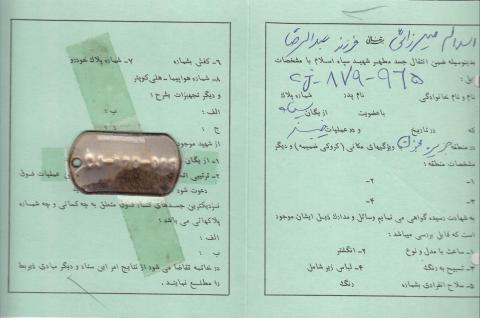 اسدالله میرزائی فرزند عبدالرضا
بدینوسیله ضمن انتقال جسد مطهر شهید سپاه اسلام با مشخصات
ذیل :
نام و نام خانوادگی نام پدر : شماره پلاک
با عضویت از یگان سپاه
که در تاریخ و در عملیات خیبر
در منطقه جزیره مجنون با ویژگیهای مکانی (کروکی ضمیمه) و دیگر
مشخصات منطقه :
۱- ۲-
۳- ۴-
به شهادت رسیده گواهی می نمایم وسائل و مدارک ذیل ایشان موجود
است که قابل بررسی میباشد :
۱- ساعت با مدل و نوع ۲- انگشتر
۳- تسبیح به رنگ ۴- لباس زیر شامل
۵- سلاح انفرادی بشماره رنگ
۶- کفش بشماره ۷- شماره پلاک خودرو
۸- شماره هواپیما - هلی کوپتر
و دیگر تجهیزات بشرح :
الف : ب :
ج :
از شهید موجود
۱- از یگان
۲- ترکیبی عملیات فوق
دعوت شود
نزدیکترین جسدهای فوق متعلق به چه کسانی و چه شماره
پلاکهائی می باشد :
الف :
ب :
در خاتمه تقاضا می شود از نتایج امر این ستاد و دیگر مبادی ذیربط
را مطلع نمایند .